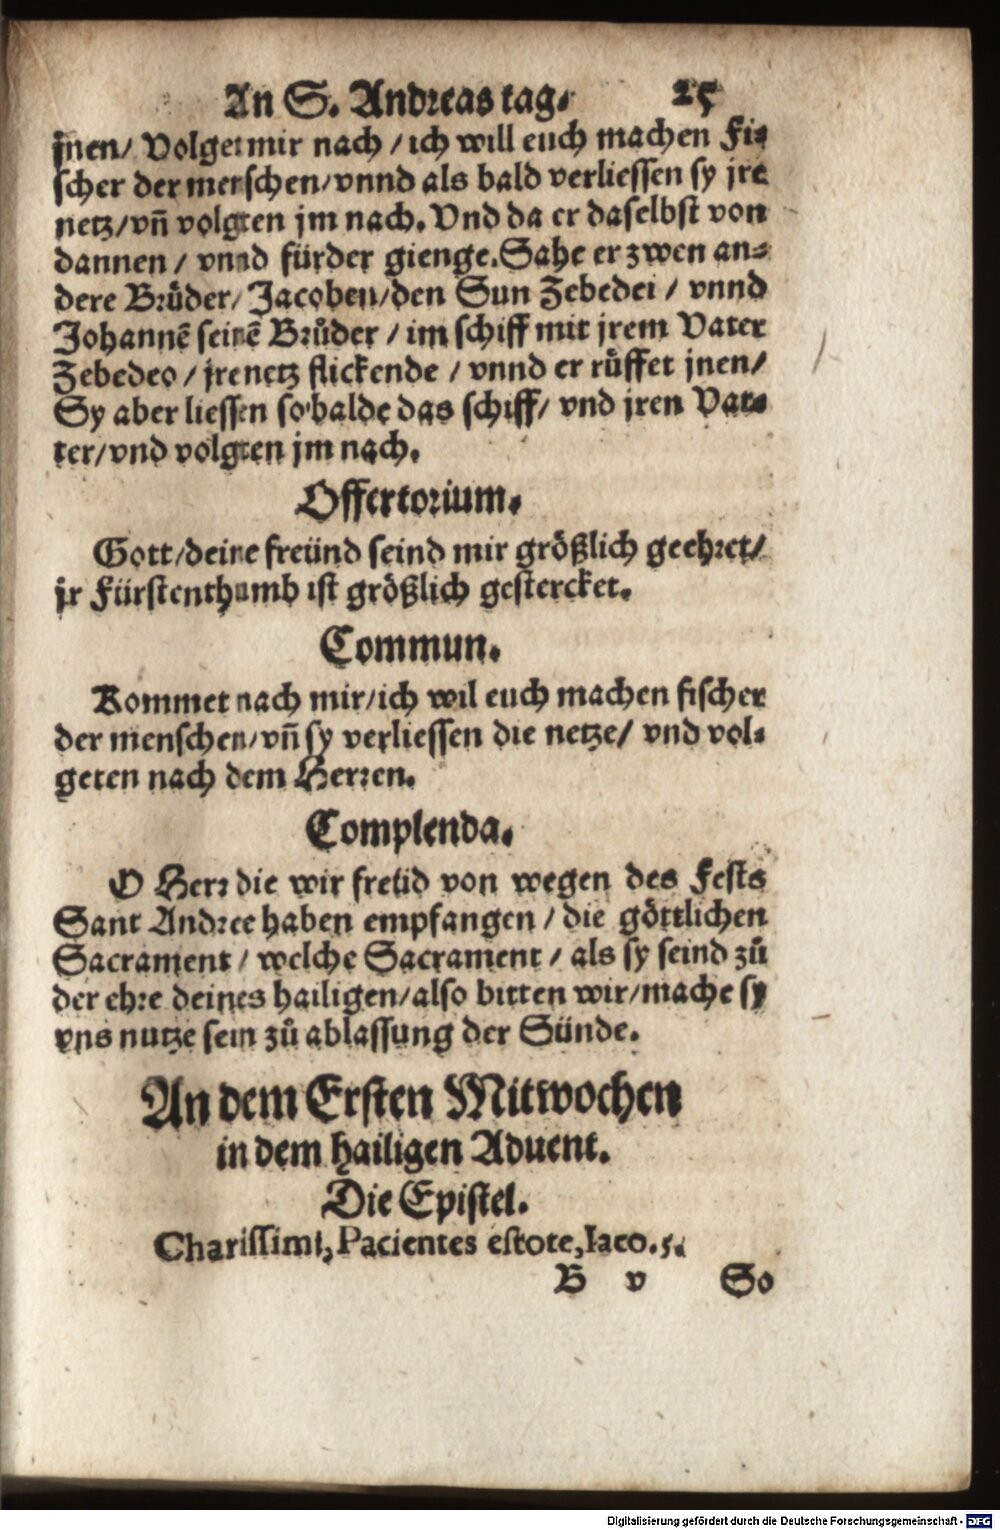 An S. Andreas tag. 25
jnen/ Volget mir nach / ich will euch machen Fi⸗
scher der menschen/vnnd als bald verliessen sy jre
netz/vn̄ volgten jm nach. Vnd da er daselbst von
dannen / vnnd fürder gienge. Sahe er zwen an⸗
dere Brůder/ Jacoben/den Sun Zebedei / vnnd
Johannē seinē Brůder / im schiff mit jrem Vater
Zebedeo / jre netz flickende / vnnd er růffet jnen/
Sy aber liessen so balde das schiff/ vnd jren Vat⸗
ter/vnd volgten jm nach.
Offertorium.
Gott/deine freünd seind mir größlich geehret/
jr Fürstenthumb ist größlich gestercket.
Commun.
Kommet nach mir/ich wil euch machen fischer
der menschen/vn̄ sy verliessen die netze/ vnd vol⸗
geten nach dem Herren.
Complenda.
O Herr die wir freüd von wegen des Fests
Sant Andree haben empfangen / die göttlichen
Sacrament / welche Sacrament / als sy seind zů
der ehre deines hailigen/also bitten wir/mache sy
vns nutze sein zů ablassung der Sünde.
An dem Ersten Mitwochen
in dem hailigen Aduent.
Die Epistel.
Charissimi, Pacientes estote, Iaco. 5.
B v So
Digitalisierung gefördert durch die Deutsche Forschungsgemeinschaft - DFG